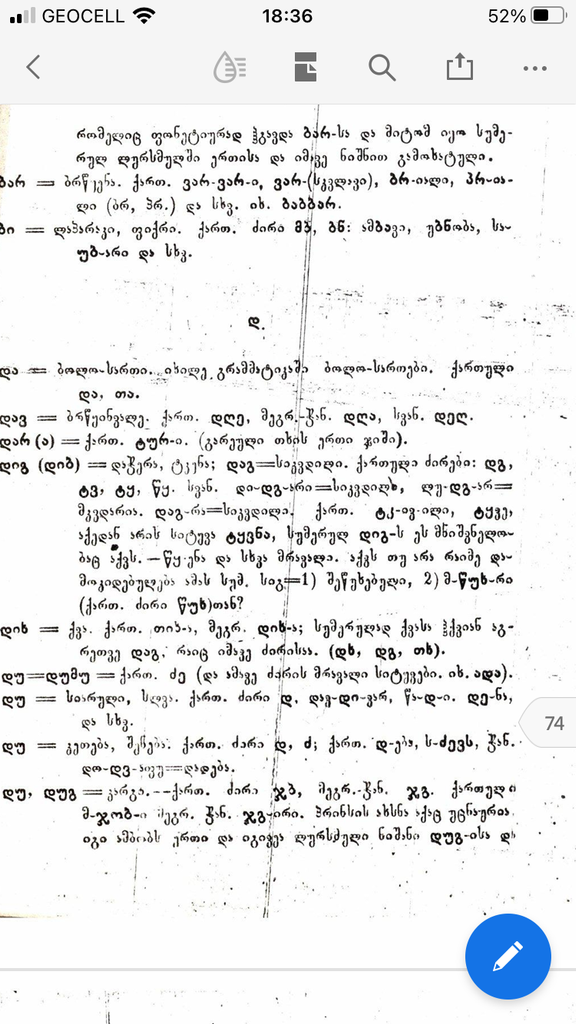 GEOCELL 18:36 52%
რომელიც ფონეტიურად ჰგავდა ბარ-სა და მიტომ იყო სუმე-
რულ ლურსმულში ერთისა და იმავე ნიშნით გამოხატული.
ბარ = ბრწყენა. ქართ. ვარ-ვარ-ი, ვარ-(სკვლავი), ბრ-იალი, პრ-ია-
ლი (ბრ, პრ.) და სხვ. იხ. ბაბბარ.
ბი = ლაპარაკი, ფიქრი. ქართ. ძირი მბ, ბნ: ამბავი, უბნობა, სა-
უბ-არი და სხვ.
დ.
და = ბოლო-სართი. იხილე გრამმატიკაში ბოლო-სართები. ქართული
და, თა.
დავ = ბრწყინვალე. ქართ. დღე, მეგრ.-ჭან. დღა, სვან. დეღ.
დარ (ა) = ქართ. ტურ-ი. (გარეული თხის ერთი ჯიში).
დიგ (დიბ) = დაჭერა, ტკენა; დაგ=სიკვდილი. ქართული ძირები: დგ,
ტვ, ტყ, წყ. სვან. დი-დგ-არი=სიკვდილი, ლუ-დგ-არ=
მკვდარია. დაგ-რა=სიკვდილი. ქართ. ტკ-ივ-ილი, ტყვე,
აქედან არის სიტუვა ტყვნა, სუმერულ დიგ-ს ეს მნიშვნელო-
ბაც აქვს. — წყ-ენა და სხვა მრავალი. აქვს თუ არა რაიმე და-
მოკიდებულება ამას სუმ. სიგ=1) შეწუხებული, 2) მ-წუხ-რი
(ქართ. ძირი წუხ)თან?
დიხ = ქვა. ქართ. თიხ-ა, მეგრ. დიხ-ა; სუმერულად ქვასა ჰქვიან აგ-
რეთვე დაგ, რაიც იმავე ძირისაა. (დხ, დგ, თხ).
დუ=დუმუ = ქართ. ძე (და ამავე ძირის მრავალი სიტუვები. იხ. ადა).
დუ = სიარული, სლვა. ქართ. ძირი დ. დავ-დი-ვარ, წა-დ-ი. დე-ნა,
და სხვ.
დუ = კეთება, შენება. ქართ. ძირი დ, ძ; ქართ. დ-ება, ს-ძევს, ჭან.
დო-დვ-აფუ=დადება.
დუ, დუგ = კარგი. -- ქართ. ძირი ჯბ, მეგრ.-ჭან. ჯგ. ქართული
მ-ჯობ-ი მეგრ. ჭან. ჯგ-ირი. პრინსის ახსნა აქაც უცნაურია
იგი ამბობს ერთი და იგივეა ლურსმული ნიშანი დუგ-ისა და
74